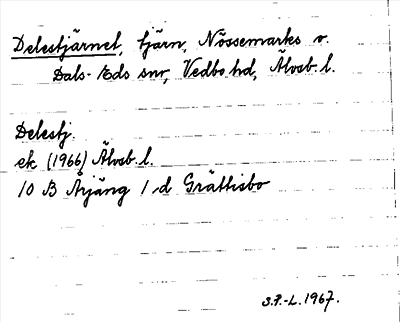 Delestjärnet, tjärn, Nössemarks v.
Dals-Eds snr, Vedbo hd, Älvsb. l.
Delestj.
ek (1966) Älvsb. l.
10 B Årjäng 1 d Grättisbo
S.P.-L. 1967.